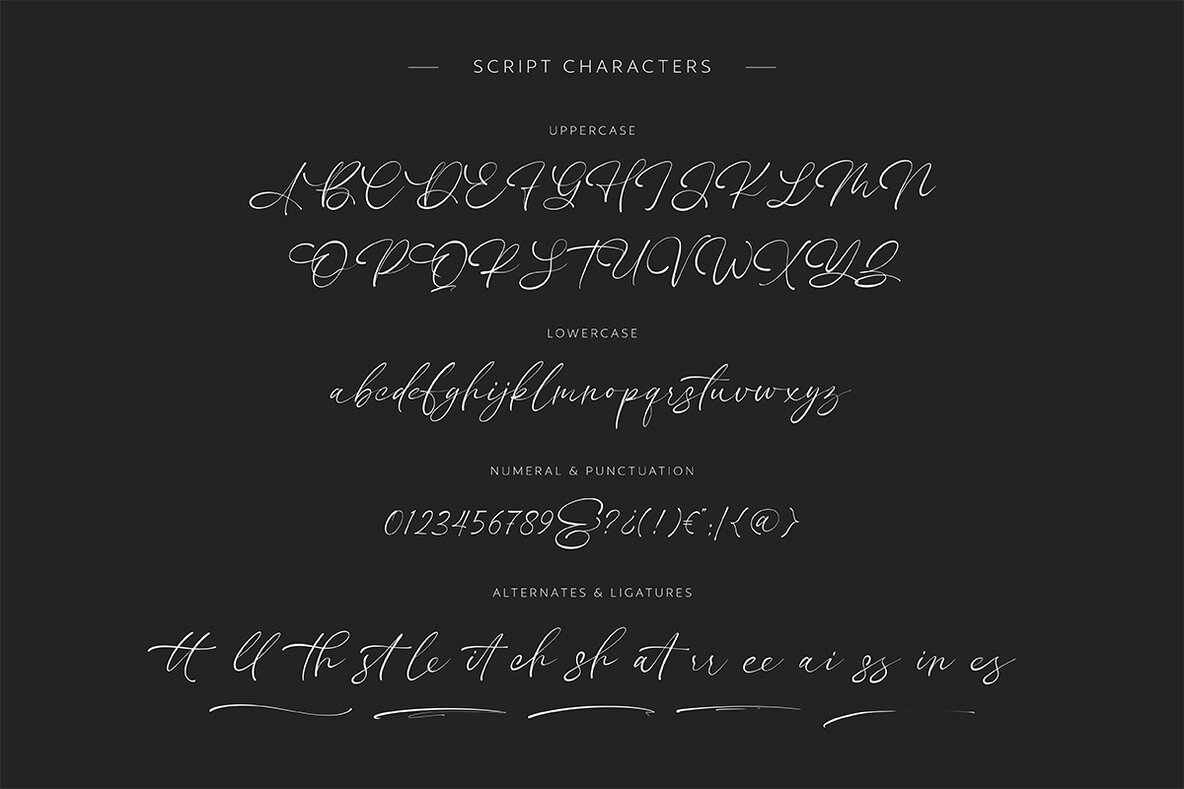 SCRIPT CHARACTERS
UPPERCASE
ABCDEFGHIJKLMN
OPQRSTUVWXYZ
LOWERCASE
abcdefghijklmnopqrstuvwxyz
NUMERAL & PUNCTUATION
0123456789&?¿(!)€";|{@}
ALTERNATES & LIGATURES
tt ll th st le it ch sh at rr ee ai ss in es